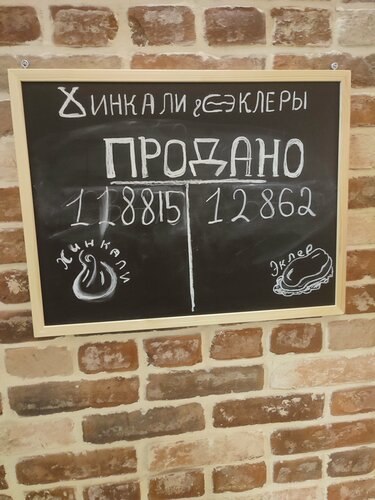 ХИНКАЛИ & ЭКЛЕРЫ
ПРОДАНО
118815 12862
ХИНКАЛИ
Эклер